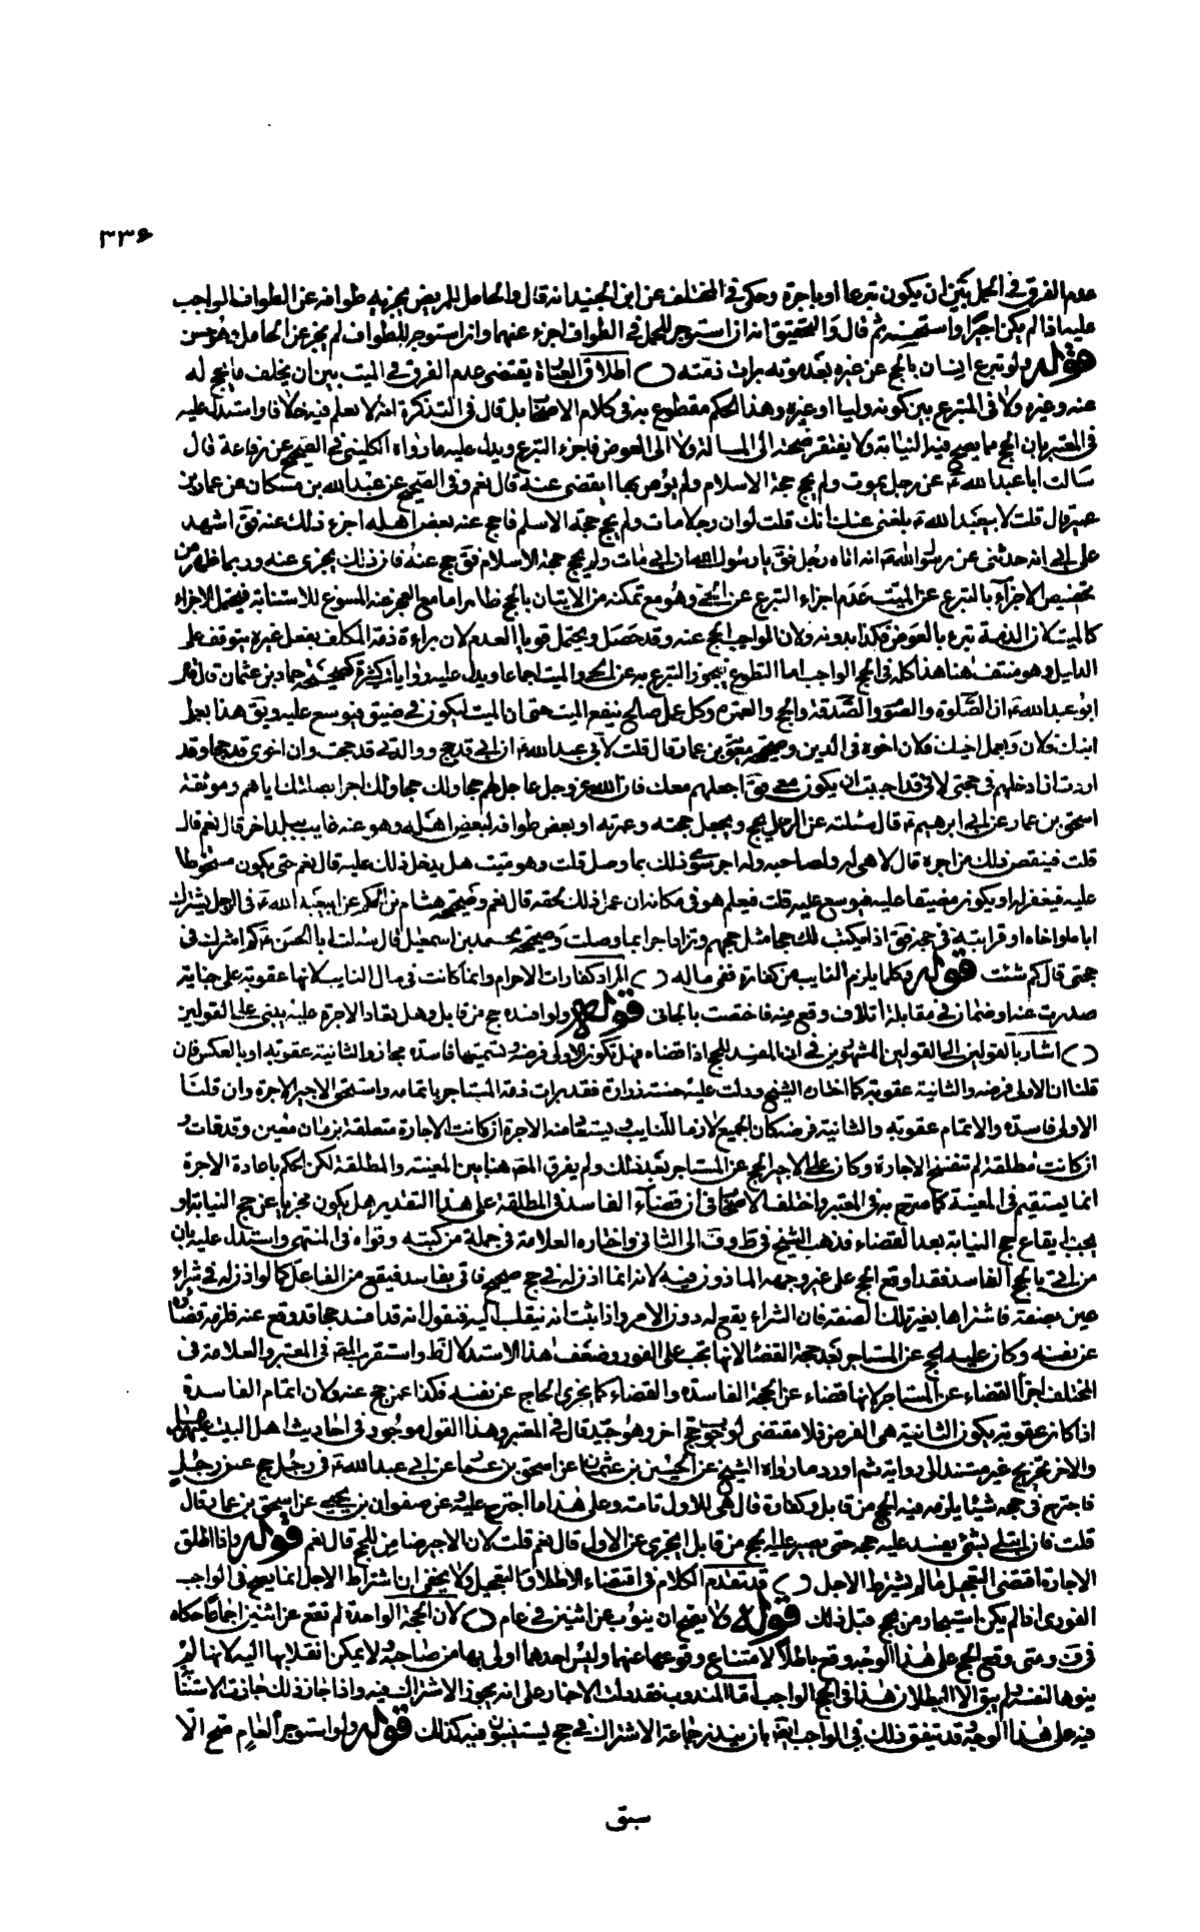 ٣٣۶
عدم الفرق في الحمل بين ان يكون تبرعا او باجرة وحكى في المختلف عن ابن الجنيد انه قال والحامل للمريض يجزيه طوافه عن الطواف الواجب
عليه اذا لم يكن اجيرا واستحسنه ثم قال والتحقيق انه ان استوجر للحمل في الطواف اجزء عنهما وان استوجر للطواف لم يجز عن الحامل وهو حسن
قوله ولو تبرع انسان بالحج عن غيره بعد موته برات ذمته () اطلاق العبارة يقتضى عدم الفرق في الميت بين ان يخلف ما يحج به
عنه وغيره ولا في المتبرع بين كونه وليا او غيره وهذا الحكم مقطوع به في كلام الاصحاب بل قال في التذكرة انه لا يعلم فيه خلافا واستدل عليه
في المعتبر بان الحج مما يصح فيه النيابة ولا يفتقر صحته الى المسالة ولا الى العوض فاجزء التبرع ويدل عليه ما رواه الكليني في الصحيح عن رفاعة قال
سالت ابا عبد الله ع عن رجل يموت ولم يحج حجة الاسلام ولم يوص بها ايقضى عنه قال نعم وفي الصحيح عن عبد الله بن مسكان عن عمار بن
عمير قال قلت لابيعبد الله ع بلغني عنك انك قلت لو ان رجلا مات ولم يحج حجة الاسلم فاحج عنه بعض اهله اجزء ذلك عنه فق اشهد
على ابي انه حدثني عن رسول الله ص انه اتاه رجل فق يا رسول الله ان ابي مات ولم يحج حجة الاسلام فق حج عنه فان ذلك يجزى عنه وربما ظهر من
تخصيص الاجزاء بالتبرع عن الميت عدم اجزاء التبرع عن الحي وهو مع تمكنه من الاتيان بالحج ظاهر اما مع العجز عنه المسوغ للاستنابة فيحتمل الاجزاء
كالميت لان الذمة تبرء بالعوض فكذا بدونه ولان الواجب الحج عنه وقد حصل ويحتمل قويا العدم لان براءة ذمة المكلف بفعل غيره يتوقف على
الدليل وهو منتف هنا هذا كله في الحج الواجب اما التطوع فيجوز التبرع به عن الحي والميت اجماعا ويدل عليه روايات كثيرة كصحيحة حماد بن عثمان قال قال
ابو عبد الله ع ان الصلوة والصوم والصدقة والحج والعمرة وكل عمل صالح ينفع الميت حتى ان الميت ليكون في ضيق فيوسع عليه ويق هذا بعمل
ابنك فلان وبعمل اخيك فلان اخوه في الدين وصحيحة معوية بن عمار قال قلت لابي عبد الله ع ان ابي قد حج ووالدتي قد حجت وان اخوى قد حجا وقد
اردت ان ادخلهم في حجتي لاني قد احببت ان يكونوا معي فق اجعلهم معك فان الله عز وجل جاعل لهم حجا ولك حجا ولك اجرا بصلتك اياهم وموثقة
اسحق بن عمار عن ابي ابرهيم ع قال سئلته عن الرجل يحج ويجعل حجته وعمرته او بعض طوافه لبعض اهله وهو عنه غايب ببلد اخر قال نعم قال
قلت فينقص ذلك من اجره قال لا هي له ولصاحبه وله اجر سوى ذلك بما وصل قلت وهو ميت هل يدخل ذلك عليه قال نعم حتى يكون مسخوطا
عليه فيغفر له او يكون مضيقا عليه فيوسع عليه قلت فيعلم هو في مكانه ان عمل ذلك لحقه قال نعم وصحيحة هشام بن الحكم عن ابيعبد الله ع في الرجل يشرك
اباه او اخاه او قرابته في حجه فق اذا يكتب لك حجا مثل حجهم وتزداد اجرا بما وصلت وصحيحة محمد بن اسمعيل قال سئلت ابا الحسن ع كم اشرك في
حجتي قال كم شئت قوله وكلما يلزم النايب من كفارة ففي ماله () المراد كفارات الاحرام وانما كانت في مال النايب لانها عقوبة على جناية
صدرت عنه او ضمان في مقابلة اتلاف وقع منه فاختصت بالجاني قوله ولو افسده حج من قابل وهل يعاد الاجرة عليه يبنى على القولين
() اشار بالقولين الى القولين المشهورين في ان المفسد للحج اذا قضاه فهل تكون الاولى فرضه وتسميتها فاسدة مجاز والثانية عقوبة او بالعكس فان
قلنا ان الاولى فرضه والثانية عقوبة كما اختاره الشيخ ودلت عليه حسنة زرارة فقد برات ذمة المستاجر باتمامه واستحق الاجير الاجرة وان قلنا
الاولى فاسدة والاتمام عقوبة والثانية فرضه كان الجميع لازما للنايب ويستعاد منه الاجرة ان كانت الاجارة متعلقة بزمان معين وقد فات و
ان كانت مطلقة لم تنفسخ الاجارة وكان على الاجير الحج عن المستاجر بعد ذلك ولم يفرق المصنف هنا بين المعينة والمطلقة لكن الحكم باعادة الاجرة
انما يستقيم في المعينة كما صرح به في المعتبر واختلف الاصحاب في ان قضاء الفاسد في المطلقة على هذا التقدير هل يكون مجزيا عن حج النيابة او
يجب ايقاع حج النيابة بعد القضاء فذهب الشيخ في ط وف الى الثاني واختاره العلامة في جملة من كتبه وقواه في المنتهى واستدل عليه بان
من اتى بالحج الفاسد فقد اوقع الحج على غير وجهه الماذون فيه لانه انما اذن له في حج صحيح فاتى بفاسد فيقع من الفاعل كما لو اذن له في شراء
عين بصفة فاشتراها بغير تلك الصفة فان الشراء يقع له دون الامر واذا ثبت انه ينقلب اليه فنقول انه قد افسد حجا قد وقع عنه فلزمه قضاؤه
عن نفسه وكان عليه الحج عن المستاجر بعد حجة القضاء لانها تجب على الفور وضعف هذا الاستدلال ظ واستقرب المصنف في المعتبر والعلامة في
المختلف اجزاء القضاء عن المستاجر لانها قضاء عن الحجة الفاسدة والقضاء كما يجزى الحاج عن نفسه فكذا عمن حج عنه ولان اتمام الفاسدة
اذا كان عقوبة يكون الثانية هي الفرض فلا مقتضى لوجوب حج اخر وهو جيد قال في المعتبر وهذا القول موجود في احاديث اهل البيت عليهم السلام
والاخر تخريج غير مستند الى رواية ثم اورد ما رواه الشيخ عن الحسين بن عثمان عن اسحق بن عمار عن ابي عبد الله ع في رجل حج عن رجل
فاجترح في حجه شيئا يلزمه فيه الحج من قابل وكفارة قال هي للاول تامة وعلى هذا ما اجترح عليه وعن صفوان بن يحيى عن اسحق بن عمار قال
قلت فان ابتلى بشئ يفسد عليه حجه حتى يصير عليه الحج من قابل ايجزى عن الاول قال نعم قلت لان الاجير ضامن للحج قال نعم قوله واذا اطلق
الاجارة اقتضى التعجيل ما لم يشترط الاجل () قد تقدم الكلام في اقتضاء الاطلاق التعجيل ولا يخفى ان اشتراط الاجل انما يصح في الواجب
الفوري اذا لم يكن استيجار من يحج قبل ذلك قوله ولا يصح ان ينوب عن اثنين في عام () لان الحجة الواحدة لم تقع عن اثنين اجماعا حكاه
في ف ومتى وقع الحج على هذا الوجه وقع باطلا لامتناع وقوعها عنهما وليس احدهما اولى بها من صاحبه ولا يمكن انقلابها اليه لانه لم
ينوها لنفسه ولم يبق الا البطلان هذا في الحج الواجب اما المندوب فقد دلت الاخبار على انه يجوز الاشتراك فيه واذا جاز ذلك جازت الاستنابة
فيه على هذا الوجه وقد يتفق ذلك في الواجب ايضا بان ينذر جماعة الاشتراك في حج يستنيبون فيه كذلك قوله ولو استوجر لعام صح الا
سبق